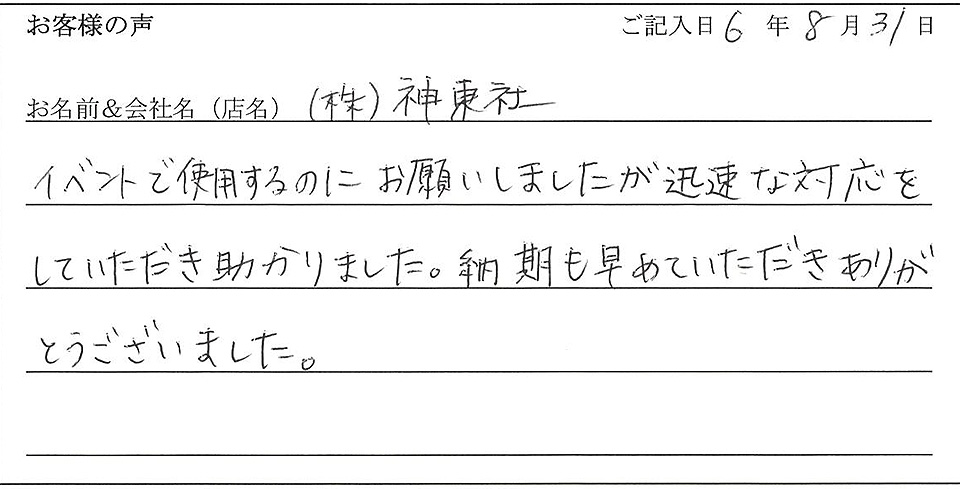 お客様の声 ご記入日 6 年 8 月 31 日
お名前&会社名（店名） (株) 神東社
イベントで使用するのにお願いしましたが迅速な対応を
していただき助かりました。納期も早めていただきありが
とうございました。